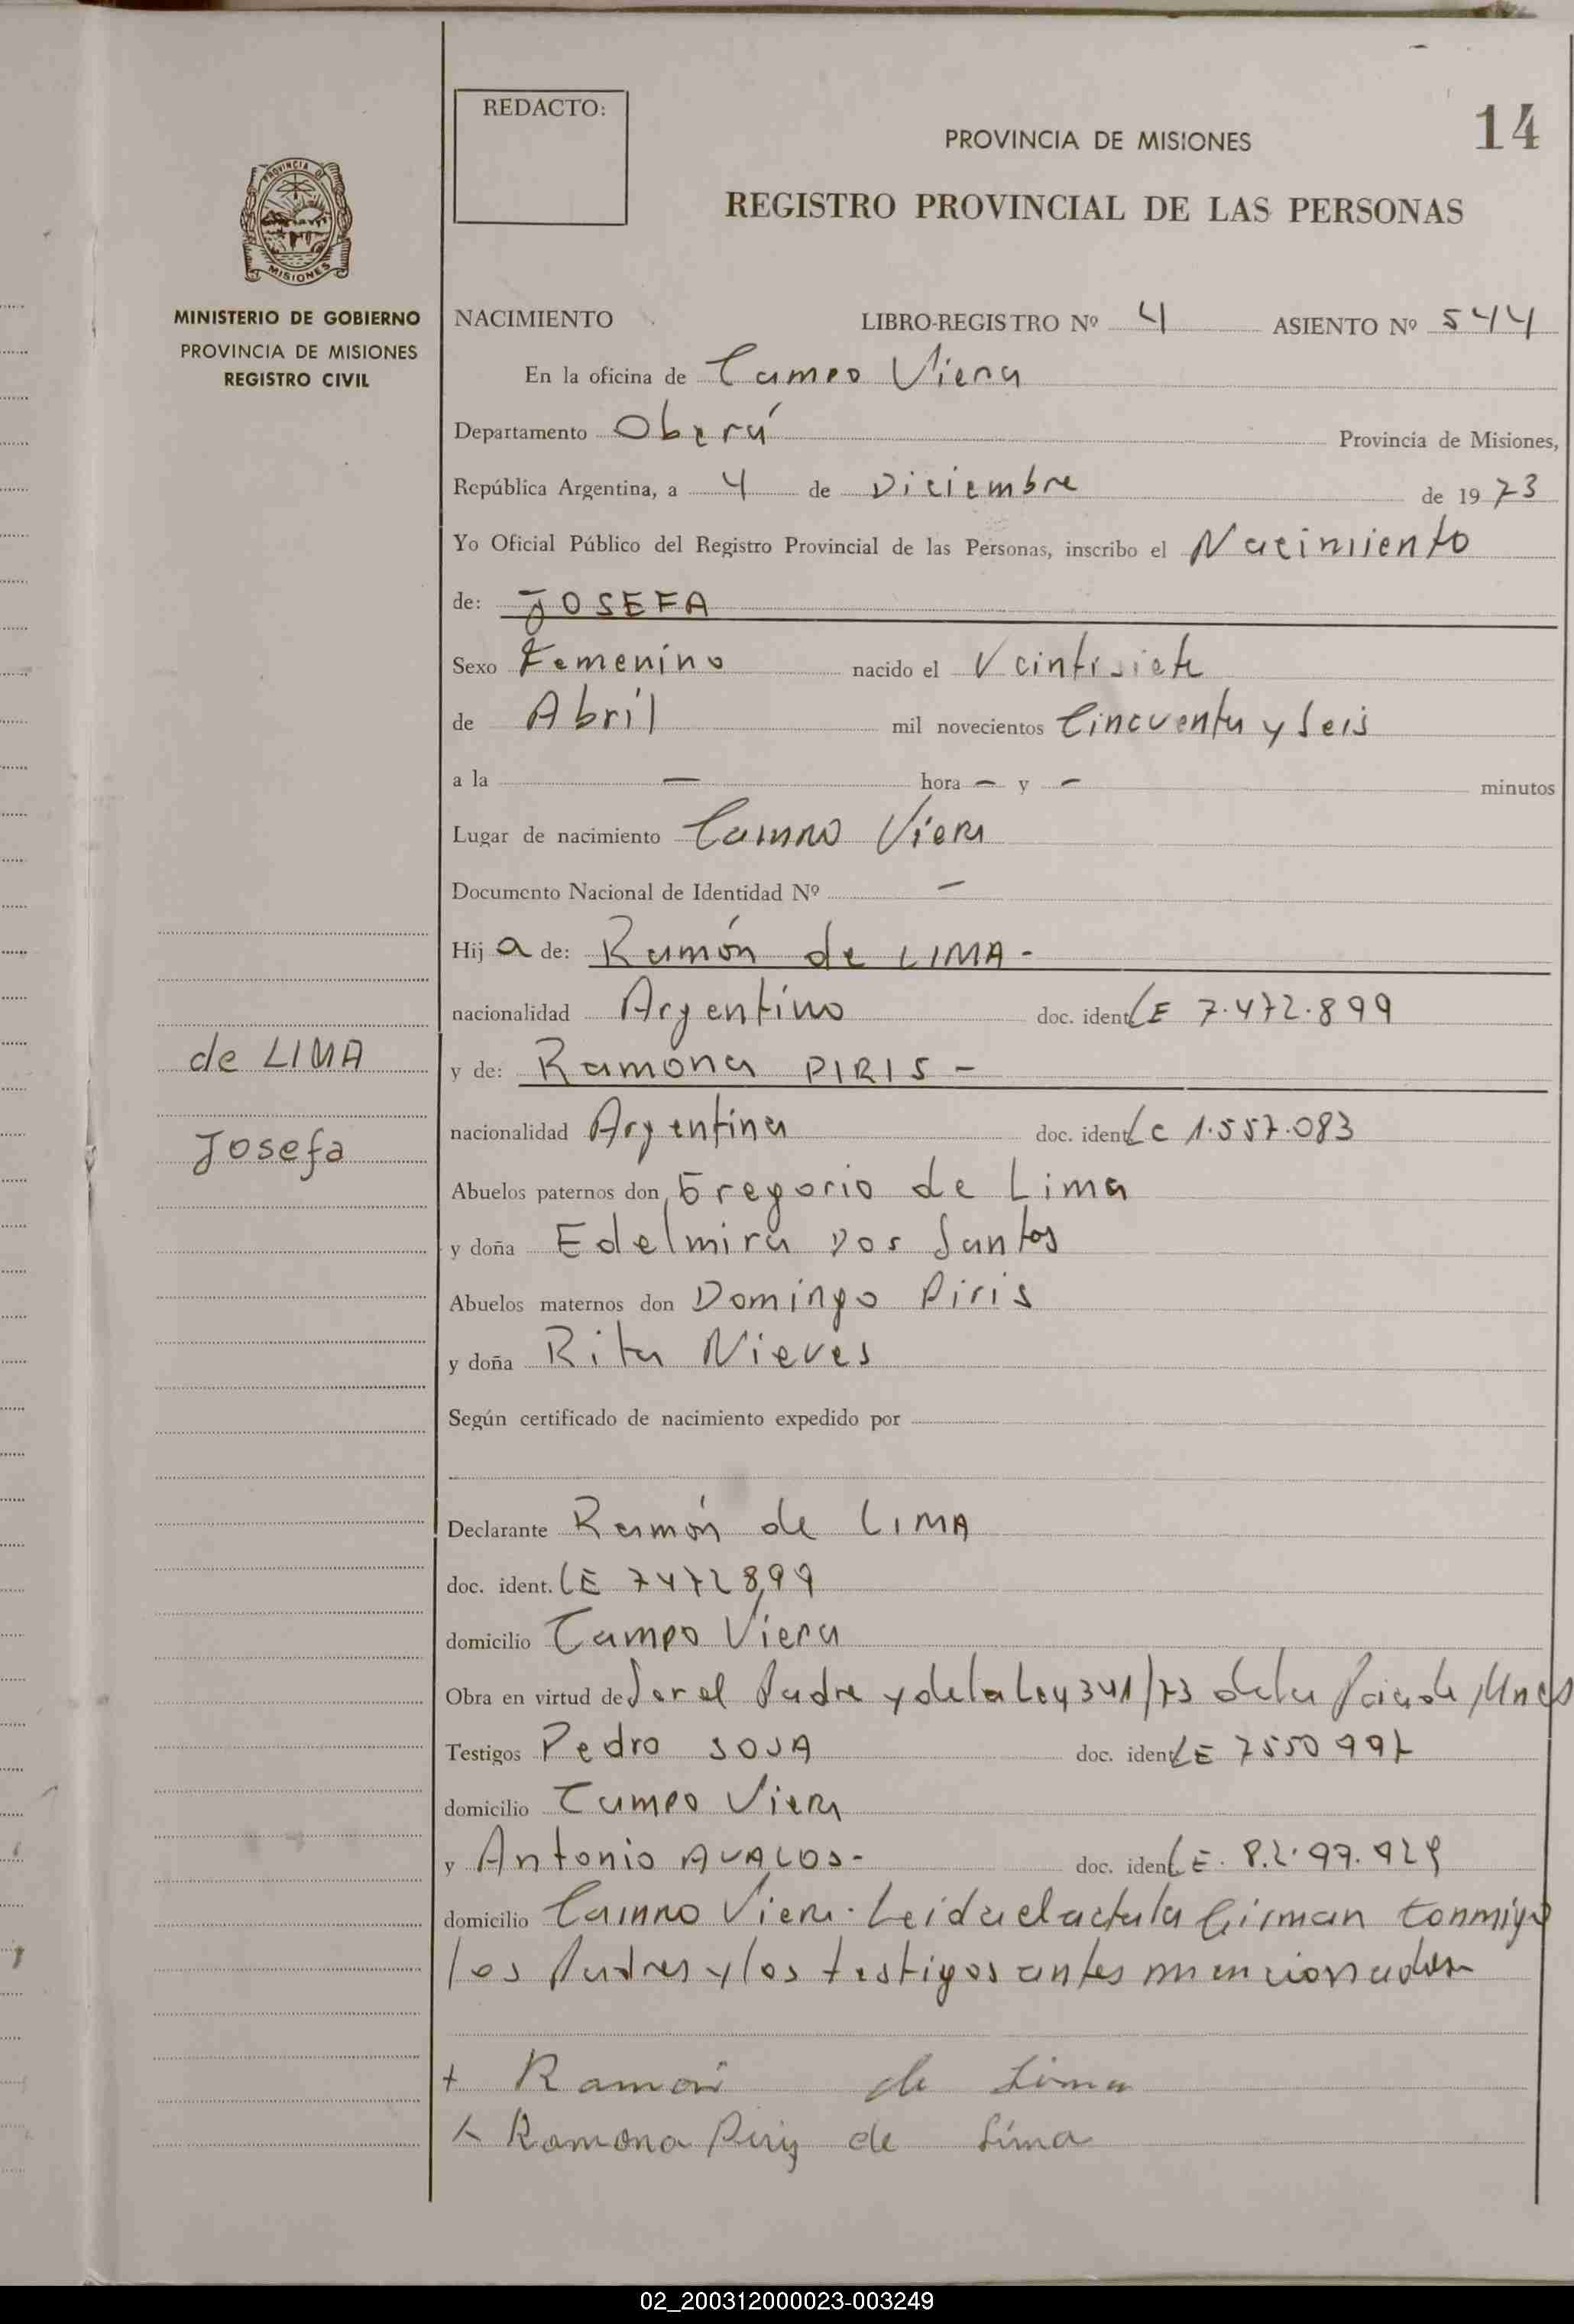 REDACTO:
PROVINCIA DE MISIONES
14
REGISTRO PROVINCIAL DE LAS PERSONAS
PROVINCIA D
MISIONES
MINISTERIO DE GOBIERNO
PROVINCIA DE MISIONES
REGISTRO CIVIL
NACIMIENTO LIBRO-REGISTRO Nº 4 ASIENTO Nº 544
En la oficina de Campo Viera
Departamento Oberá Provincia de Misiones,
República Argentina, a 4 de Diciembre de 1973
Yo Oficial Público del Registro Provincial de las Personas, inscribo el Nacimiento
de: JOSEFA
Sexo Femenino nacido el Veintisiete
de Abril mil novecientos Cincuenta y Seis
a la — hora — y — minutos
Lugar de nacimiento Campo Viera
Documento Nacional de Identidad Nº —
Hija de: Ramón de LIMA -
nacionalidad Argentino doc. ident. LE 7.472.899
de LIMA
y de: Ramona PIRIS -
nacionalidad Argentina doc. ident. LC 1.557.083
Josefa
Abuelos paternos don Gregorio de Lima
y doña Edelmira Dos Santos
Abuelos maternos don Domingo Piris
y doña Rita Nieves
Según certificado de nacimiento expedido por
Declarante Ramón de LIMA
doc. ident. LE 7472899
domicilio Campo Viera
Obra en virtud de Ser el Padre y de la Ley 341/73 de la Pcia de Mnes
Testigos Pedro SOSA doc. ident. LE 7550997
domicilio Campo Viera
y Antonio AVALOS- doc. ident. LE. 8.2.97.929
domicilio Campo Viera. Leida el acta la firman conmigo
los Padres y los testigos antes mencionados
+ Ramón de Lima
Ramona Piris de Lima
02_200312000023-003249